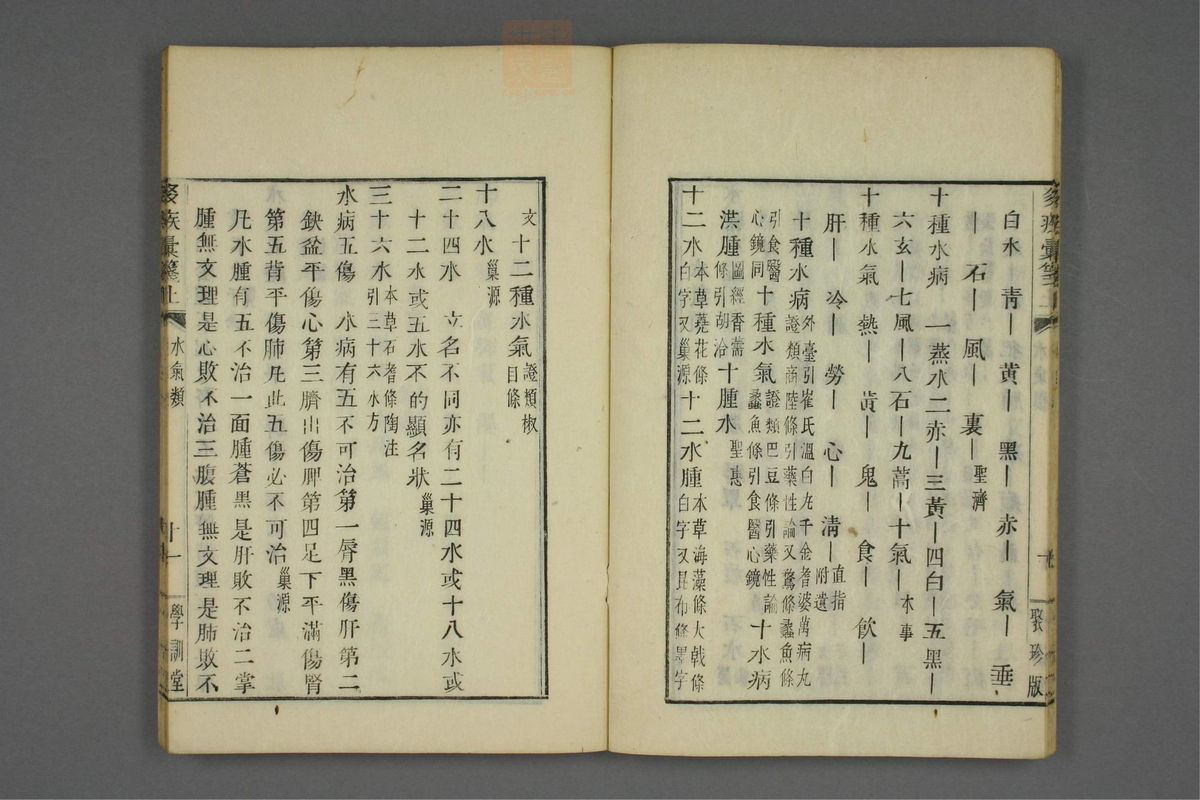 白水 靑｜黃｜黑｜赤｜氣｜垂
｜石｜風｜裏｜聖濟
十種水病 一蒸水二赤｜三黃｜四白｜五黑｜
六玄｜七風｜八石｜九蒿｜十氣｜本事
十種水氣 熱｜黃｜鬼｜食｜飮｜
肝｜冷｜勞｜心｜淸｜直指附遺
十種水病外臺引崔氏溫白丸千金耆婆萬病丸證類商陸條引藥性論又鶩條蠡魚條
引食醫心鏡同十種水氣證類巴豆條引藥性論蠡魚條引食醫心鏡十水病
洪腫圖經香薷條引胡洽十腫水聖惠
十二水本草蕘花條白字又巢源十二水腫本草海藻條大戟條白字又昆布條墨字
聚珍版
文十二種水氣證類椒目條
十八水巢源
二十四水 立名不同亦有二十四水或十八水或
十二水或五水不的顯名狀巢源
三十六水本草石耆條陶注引三十六水方
水病五傷 水病有五不可治第一脣黑傷肝第二
鈌盆平傷心第三臍出傷脾第四足下平滿傷腎
第五背平傷肺凡此五傷必不可治巢源
凡水腫有五不治一面腫蒼黑是肝敗不治二掌
腫無文理是心敗不治三腹腫無文理是肺敗不
水氣類
十一
學訓堂